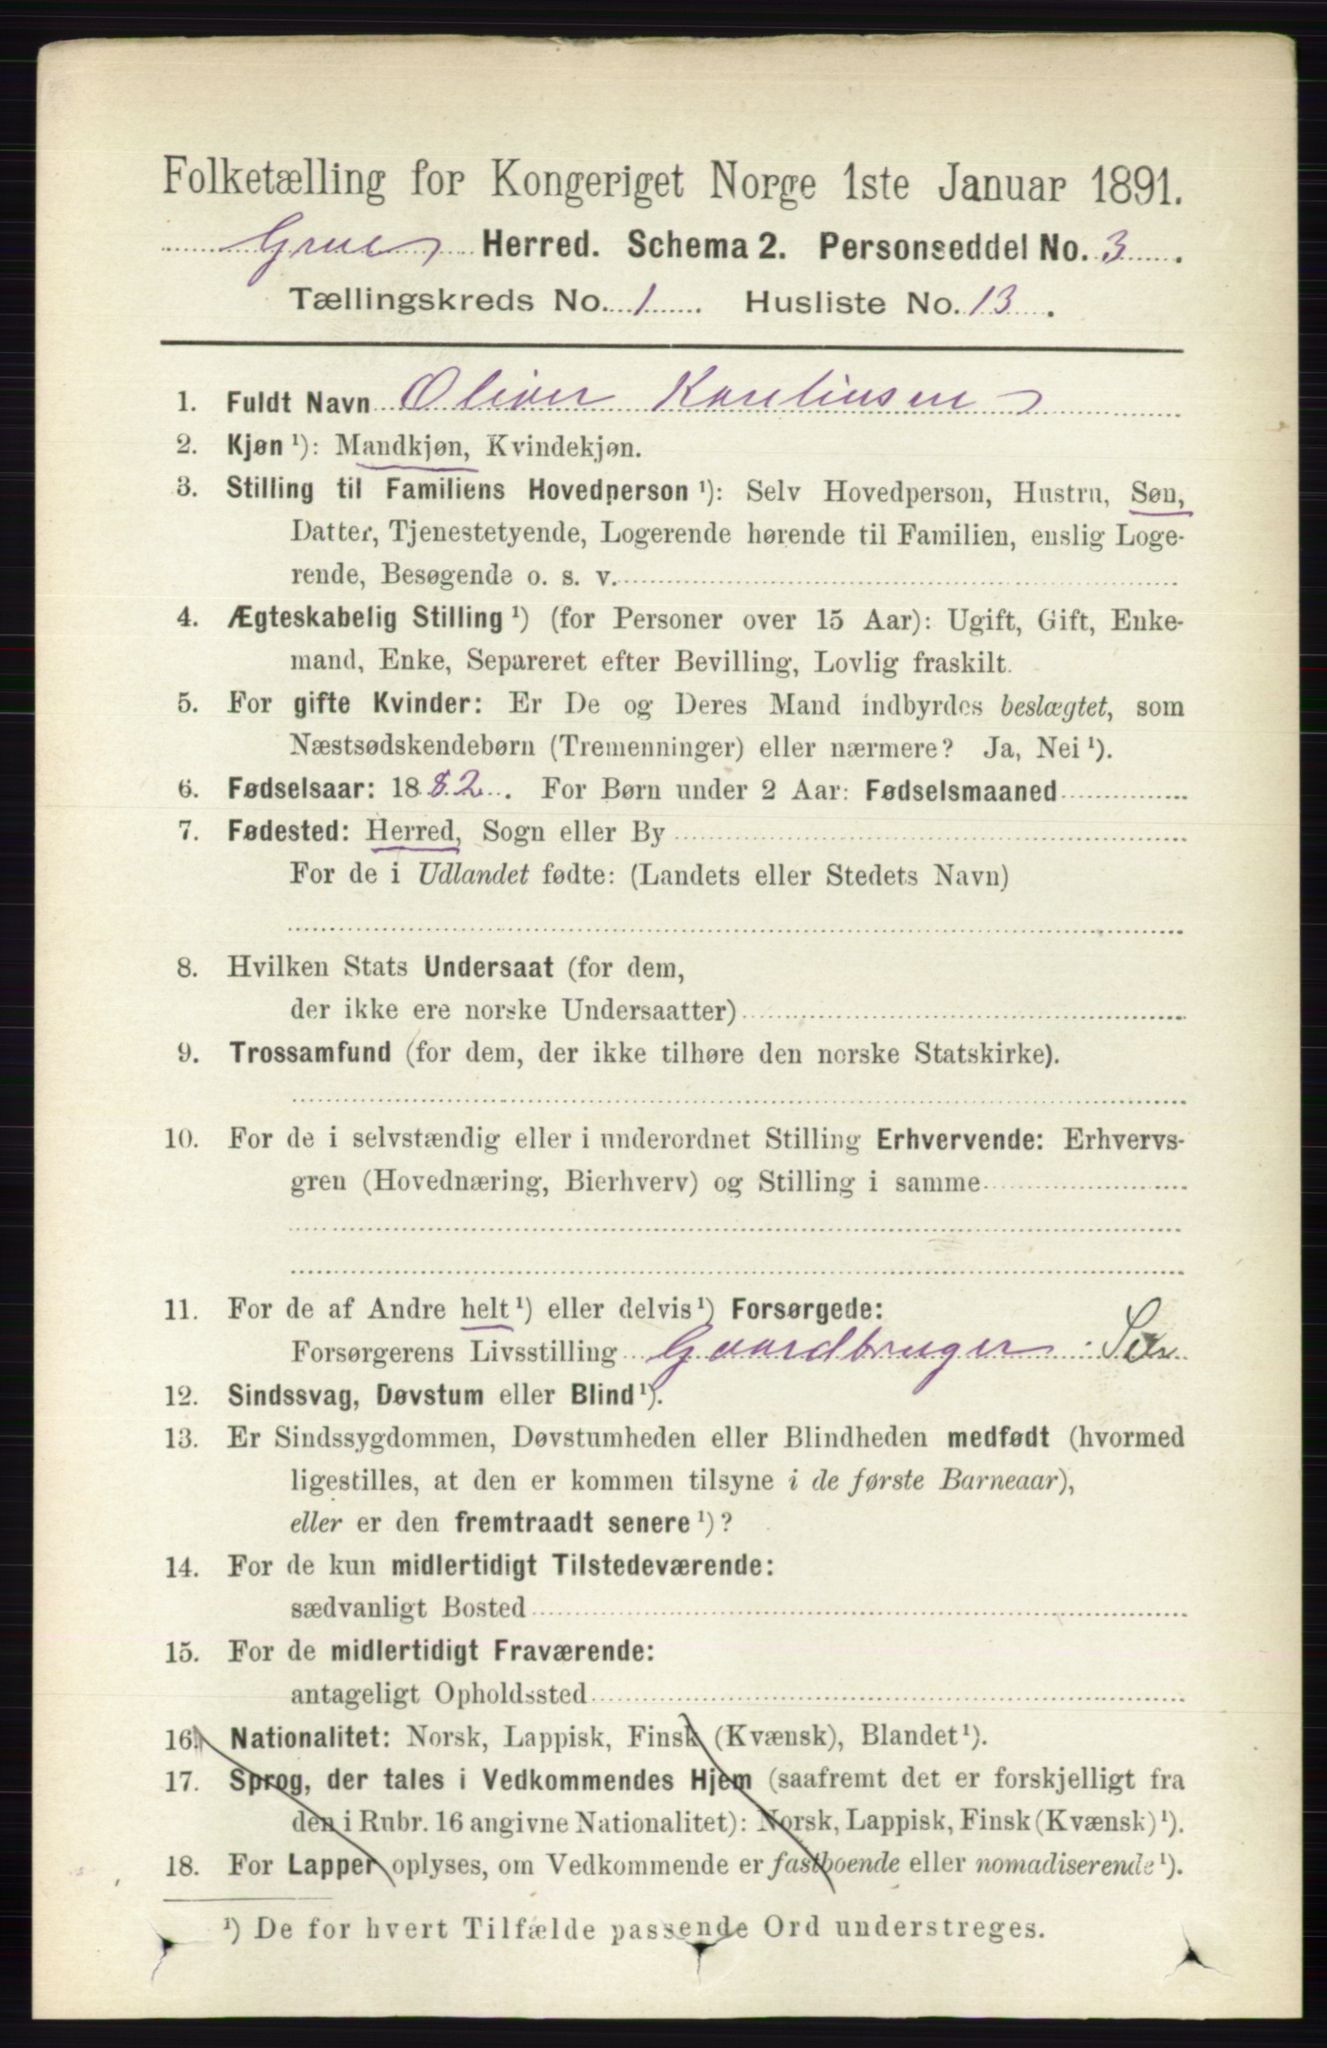 Folketælling for Kongeriget Norge 1ste Januar 1891.
Grue Herred. Schema 2. Personseddel No. 3.
Tællingskreds No. 1. Husliste No. 13.
1. Fuldt Navn Oliver Karelinsen
2. Kjøn ¹): Mandkjøn, Kvindekjøn.
3. Stilling til Familiens Hovedperson ¹): Selv Hovedperson, Hustru, Søn,
Datter, Tjenestetyende, Logerende hørende til Familien, enslig Loge-
rende, Besøgende o. s. v.
4. Ægteskabelig Stilling ¹) (for Personer over 15 Aar): Ugift, Gift, Enke-
mand, Enke, Separeret efter Bevilling, Lovlig fraskilt.
5. For gifte Kvinder: Er De og Deres Mand indbyrdes beslægtet, som
Næstsødskendebørn (Tremenninger) eller nærmere? Ja, Nei ¹).
6. Fødselsaar: 1882. For Børn under 2 Aar: Fødselsmaaned
7. Fødested: Herred, Sogn eller By
For de i Udlandet fødte: (Landets eller Stedets Navn)
8. Hvilken Stats Undersaat (for dem,
der ikke ere norske Undersaatter)
9. Trossamfund (for dem, der ikke tilhøre den norske Statskirke).
10. For de i selvstændig eller i underordnet Stilling Erhvervende: Erhvervs-
gren (Hovednæring, Bierhverv) og Stilling i samme
11. For de af Andre helt ¹) eller delvis ¹) Forsørgede:
Forsørgerens Livsstilling Gaardbruger
12. Sindssvag, Døvstum eller Blind ¹).
13. Er Sindssygdommen, Døvstumheden eller Blindheden medfødt (hvormed
ligestilles, at den er kommen tilsyne i de første Barneaar),
eller er den fremtraadt senere ¹)?
14. For de kun midlertidigt Tilstedeværende:
sædvanligt Bosted
15. For de midlertidigt Fraværende:
antageligt Opholdssted
16. Nationalitet: Norsk, Lappisk, Finsk (Kvænsk), Blandet ¹).
17. Sprog, der tales i Vedkommendes Hjem (saafremt det er forskjelligt fra
den i Rubr. 16 angivne Nationalitet): Norsk, Lappisk, Finsk (Kvænsk) ¹).
18. For Lapper oplyses, om Vedkommende er fastboende eller nomadiserende ¹).
¹) De for hvert Tilfælde passende Ord understreges.